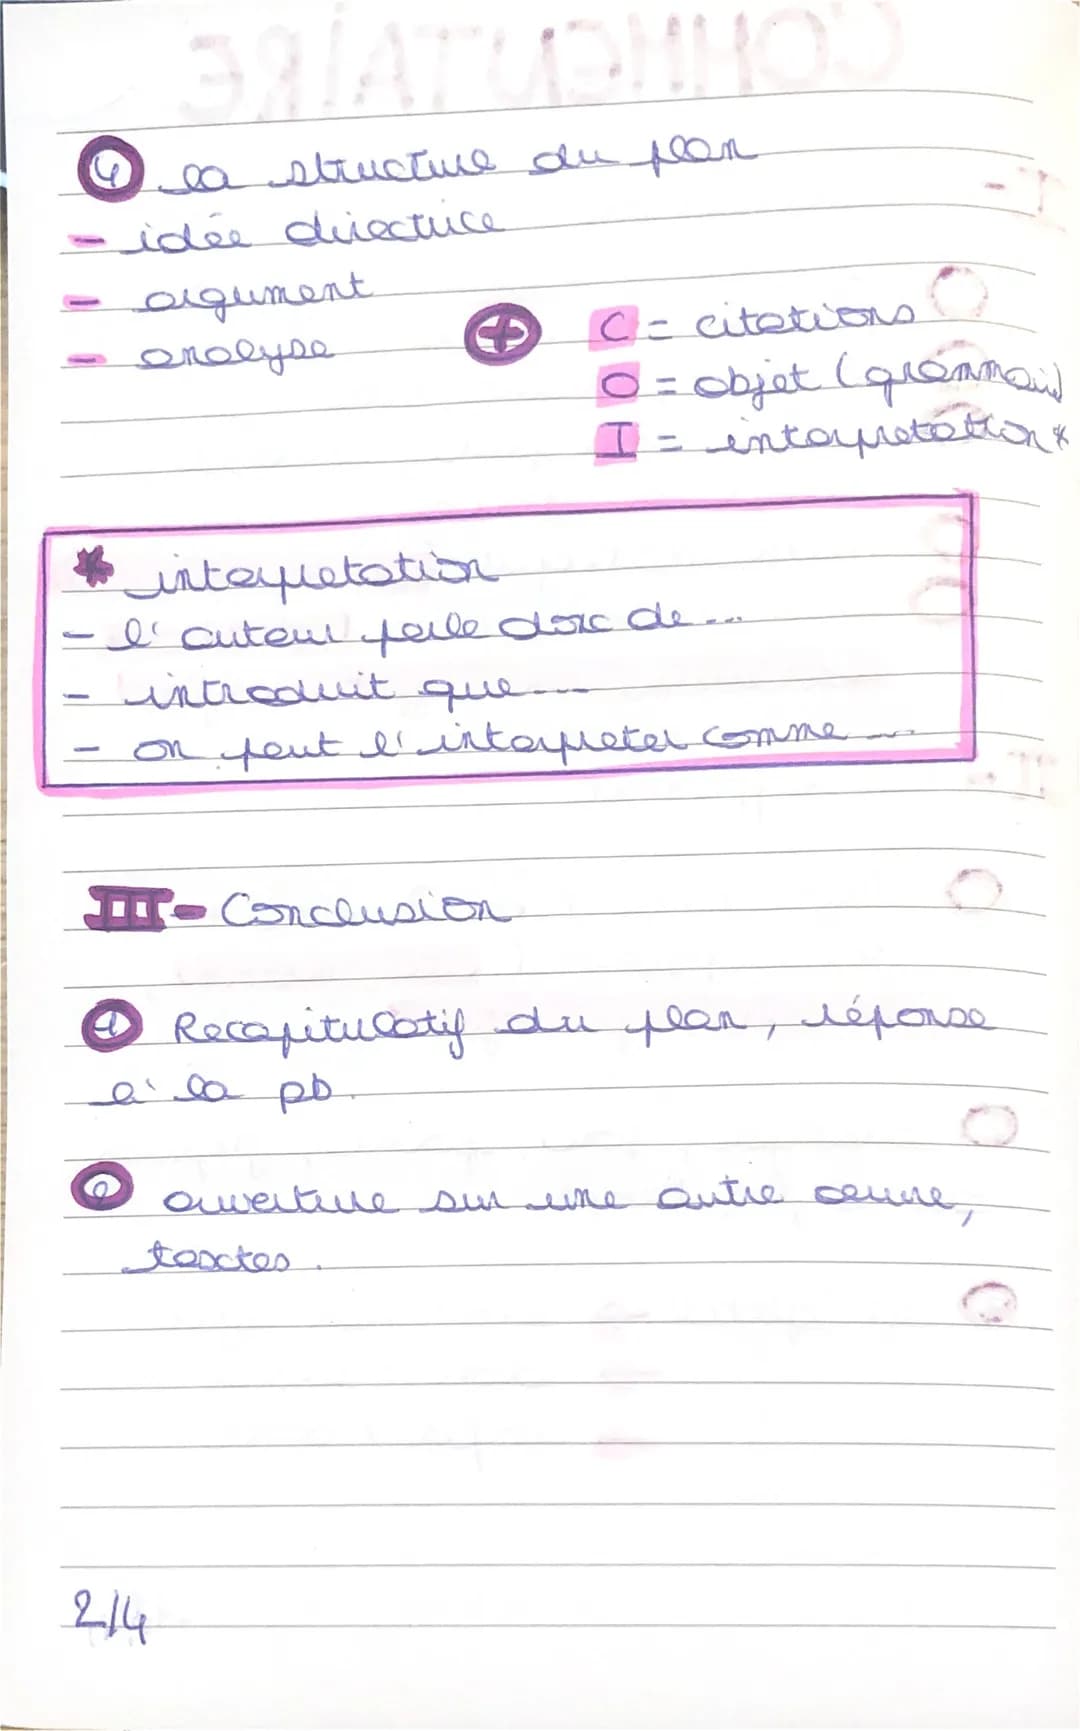 4 la structure du plan
- idée directrice
- argument
- analyse
+ C = citations
O = objet (grammair)
I = interprétation *
* interpretation
- l'auteur parle donc de ...
- introduit que ...
- on peut l'interpreter comme ...
III - Conclusion
1 Recapitulatif du plan, réponse
à la pb.
2 ouverture sur une autre oeuvre,
textes.
2/4